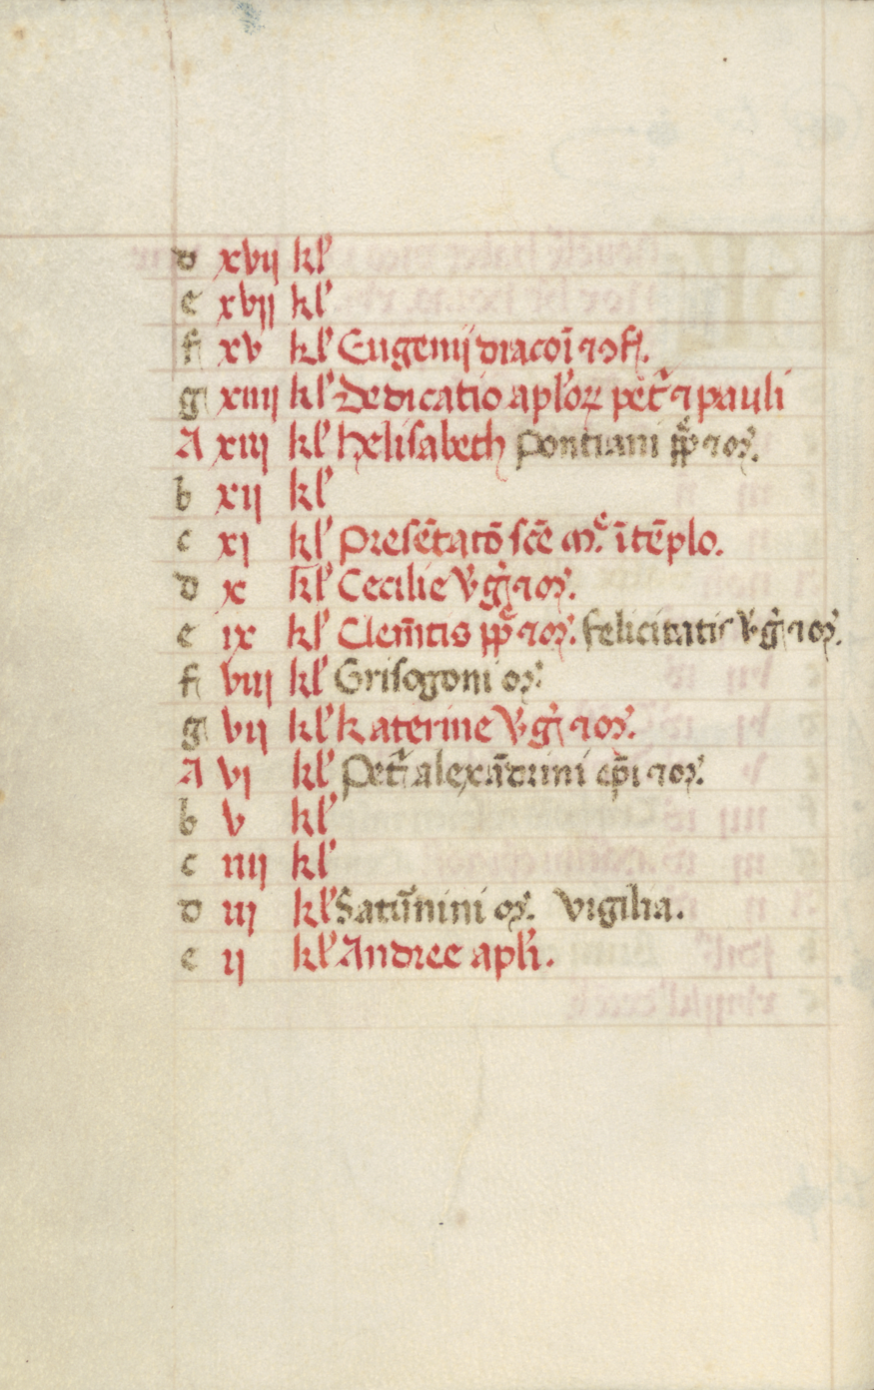 d xvij kl'
e xvij kl'
f xv kl' Eugenij diaconī ⁊ ↄf.
g xiiij kl' Dedicatio apl'oꝝ pet' ⁊ pauli
A xiij kl' helisabeth pontiani pp̄ ⁊ m̄.
b xij kl'
c xj kl' presētatō scē m̄.e ī tēplo.
d x kl' Cecilie v'ḡ ⁊ m̄.
e ix kl' Clem̄tis pp̄e ⁊ m̄. felicitatis v'ḡ ⁊ m̄.
f viij kl' Grisogoni m̄.
g vij kl' katerine v'ḡ ⁊ m̄.
A vj kl' Pet' alexādrini ep̄i ⁊ m̄.
b v kl'
c iiij kl'
d iij kl' Satur̄nini m̄. vigilia.
e ij kl' Andree apl'i.